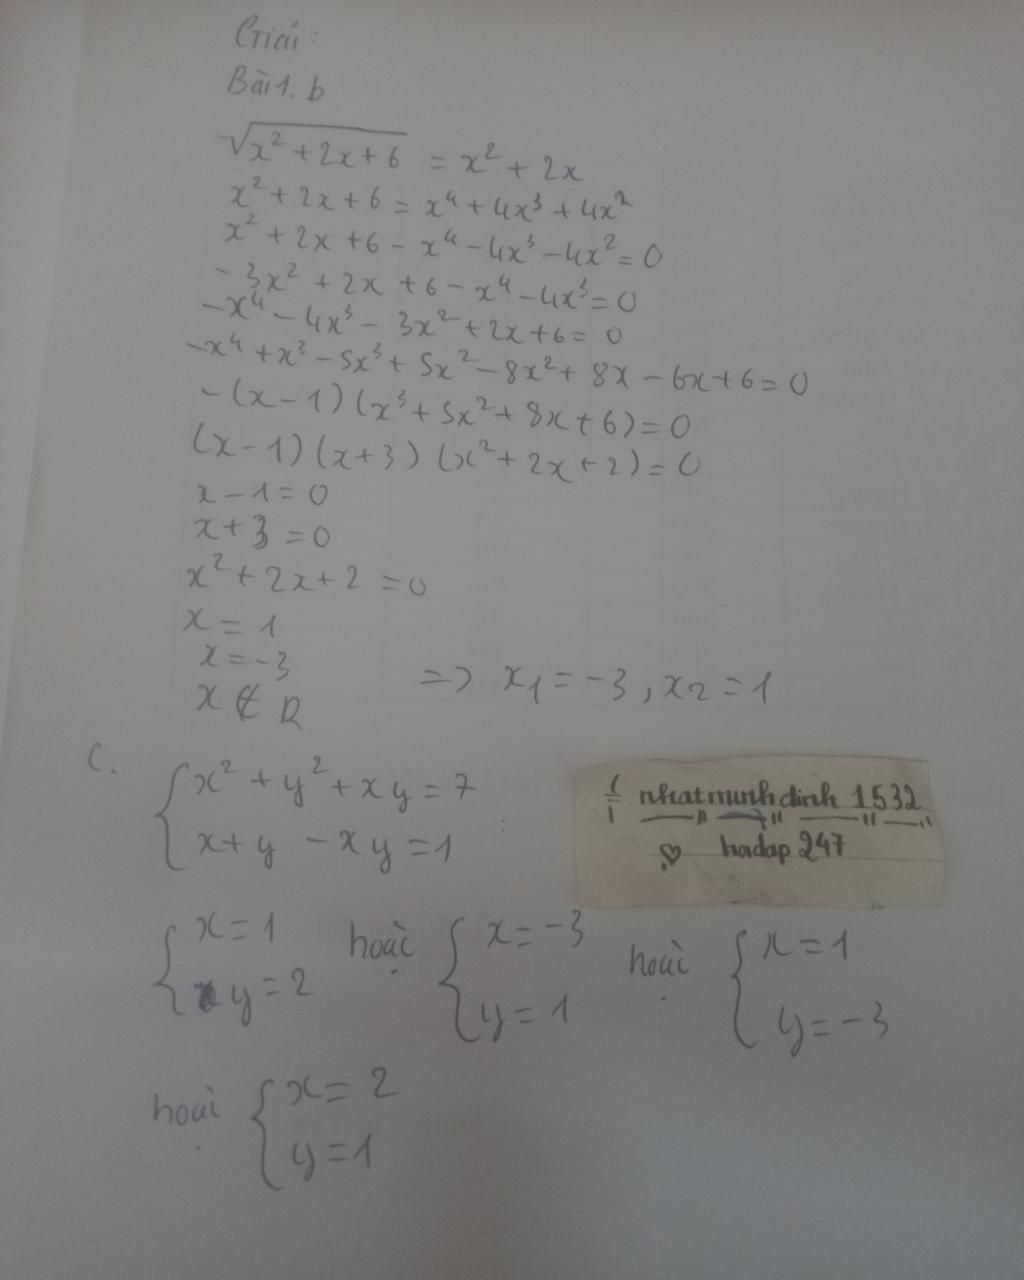 Giải:
Bài 1. b
√x² + 2x + 6 = x² + 2x
x² + 2x + 6 = x⁴ + 4x³ + 4x²
x² + 2x + 6 - x⁴ - 4x³ - 4x² = 0
- 3x² + 2x + 6 - x⁴ - 4x³ = 0
-x⁴ - 4x³ - 3x² + 2x + 6 = 0
-x⁴ + x³ - 5x³ + 5x² - 8x² + 8x - 6x + 6 = 0
-(x-1)(x³ + 5x² + 8x + 6) = 0
(x-1)(x+3)(x² + 2x + 2) = 0
x - 1 = 0
x + 3 = 0
x² + 2x + 2 = 0
x = 1
x = -3
x ∉ R => x₁ = -3, x₂ = 1
c.
{ x² + y² + xy = 7
x + y - xy = 1
nhatminhdinh 1532
hoidap 247
{ x = 1 hoặc { x = -3 hoặc { x = 1
y = 2 y = 1 y = -3
hoặc { x = 2
y = 1